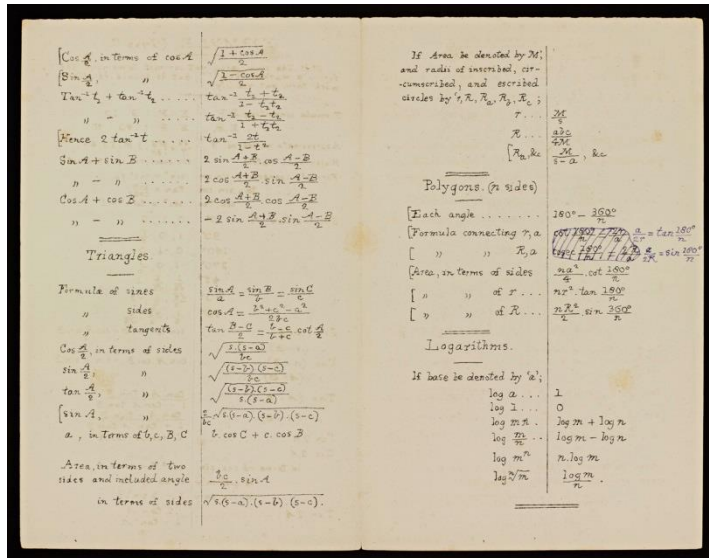 [Cos A/2, in terms of cos A √((1 + cos A)/2)
[Sin A/2, " √((1 − cos A)/2)
Tan⁻¹ t₁ + tan⁻¹ t₂ ...... tan⁻¹ (t₁ + t₂)/(1 − t₁t₂)
" − " ...... tan⁻¹ (t₁ − t₂)/(1 + t₁t₂)
[Hence 2 tan⁻¹ t ...... tan⁻¹ 2t/(1 − t²)
Sin A + sin B ...... 2 sin (A+B)/2 . cos (A−B)/2
" − " ...... 2 cos (A+B)/2 . sin (A−B)/2
Cos A + cos B ...... 2 cos (A+B)/2 . cos (A−B)/2
" − " ...... − 2 sin (A+B)/2 . sin (A−B)/2
Triangles.
Formula of sines sin A/a = sin B/b = sin C/c
" sides cos A = (b² + c² − a²)/2bc
" tangents tan (B−C)/2 = (b−c)/(b+c) . cot A/2
Cos A/2, in terms of sides √(s.(s−a)/bc)
sin A/2, " √((s−b).(s−c)/bc)
tan A/2, " √((s−b).(s−c)/s.(s−a))
[sin A, " 2/bc √(s.(s−a).(s−b).(s−c))
a, in Terms of b, c, B, C b. cos C + c. cos B
Area, in terms of two
sides and included angle bc/2 . sin A
in terms of sides √(s.(s−a).(s−b).(s−c)).
If Area be denoted by 'M',
and radii of inscribed, cir-
-cumscribed, and escribed
circles by 'r, R, Rₐ, R_b, R_c';
r .... M/s
R .... abc/4M
[Rₐ, &c M/(s−a), &c
Polygons. (n sides)
[Each angle ........ 180° − 360°/n
[Formula connecting r, a a/2r = tan 180°/n
[ " " R, a a/2R = sin 180°/n
[Area, in terms of sides na²/4 . cot 180°/n
[ " " of r .... nr². tan 180°/n
[ " " of R .... nR²/2 . sin 360°/n
Logarithms.
If base be denoted by 'a';
log a .... 1
log 1 .... 0
log mn . log m + log n
log m/n .. log m − log n
log mⁿ n. log m
log ⁿ√m log m/n .